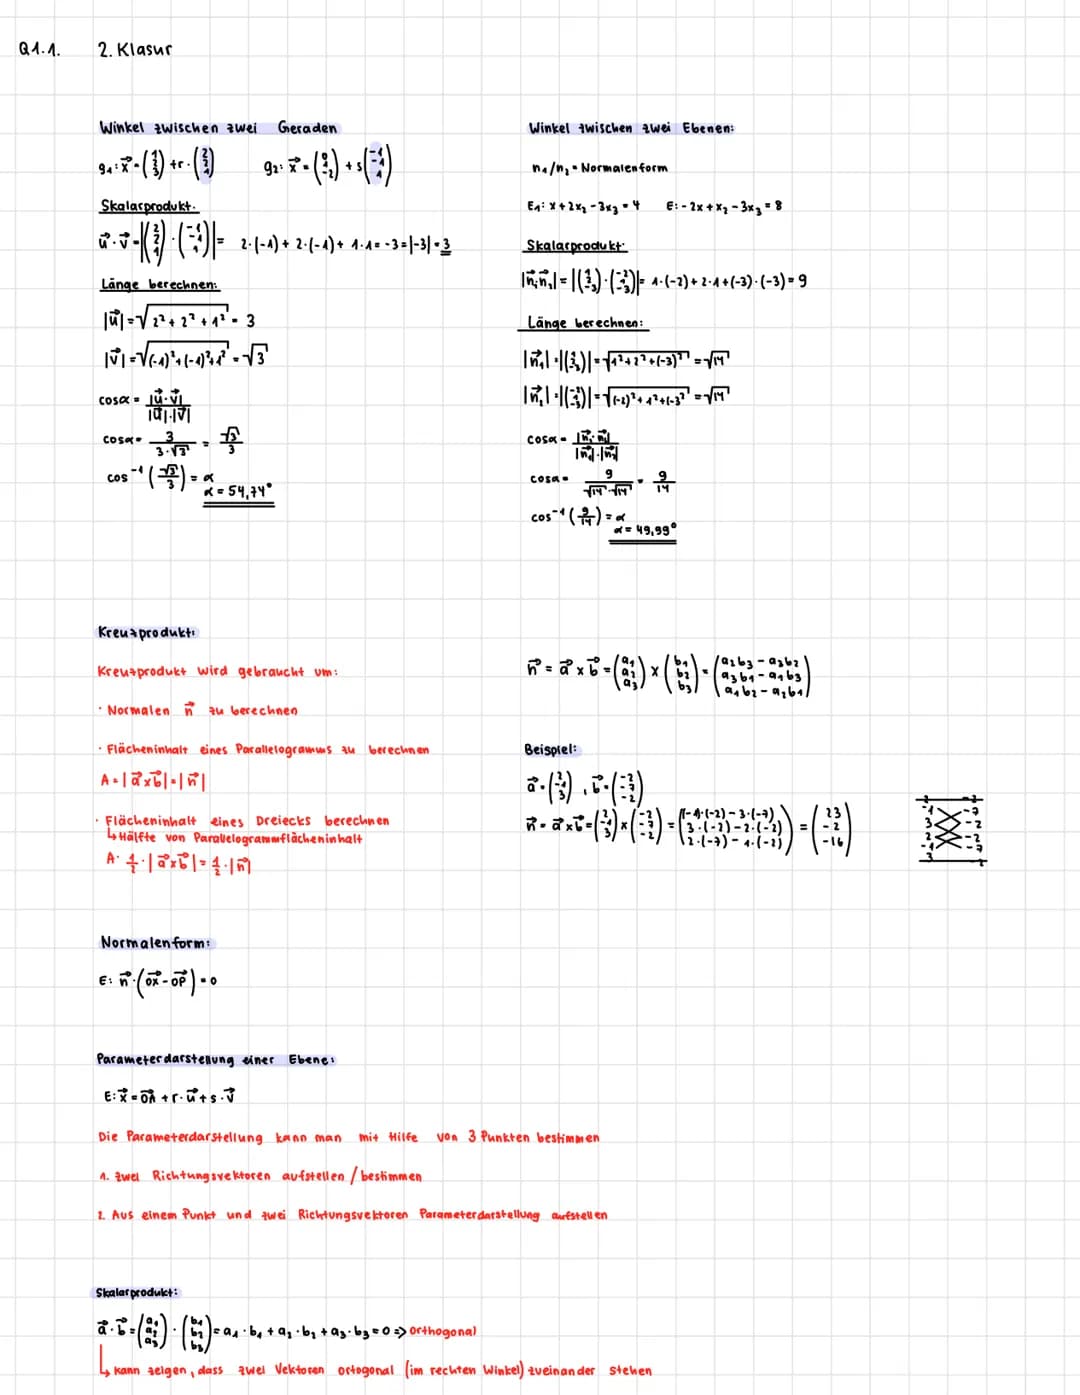 Q1.1. 2. Klasur
Winkel zwischen zwei Geraden
g₁: x⃗ = (1 3 3) + r · (2 2 1) g₂: x⃗ = (0 4 -2) + s (-1 -1 1)
Skalarprodukt.
u⃗ · v⃗ = |(2 2 1) · (-1 -1 1)| = 2·(-1) + 2·(-1) + 1·1 = -3 = |-3| = 3
Länge berechnen:
|u⃗| = √2² + 2² + 1² = 3
|v⃗| = √(-1)² + (-1)² + 1² = √3
cosα = |u⃗·v⃗| / |u⃗|·|v⃗|
cosα = 3 / 3·√3 = √3 / 3
cos⁻¹ (√3 / 3) = α
α = 54,74°
Winkel zwischen zwei Ebenen:
n₁/n₂ = Normalenform
E₁: x + 2x₂ - 3x₃ = 4 E: -2x + x₂ - 3x₃ = 8
Skalarprodukt:
|n⃗₁·n⃗₂| = |(1 2 -3) · (-2 1 -3)| = 1·(-2) + 2·1 + (-3)·(-3) = 9
Länge berechnen:
|n⃗₁| = |(1 2 -3)| = √1² + 2² + (-3)² = √14
|n⃗₂| = |(-2 1 -3)| = √(-2)² + 1² + (-3)² = √14
cosα = |n⃗₁·n⃗₂| / |n⃗₁|·|n⃗₂|
cosα = 9 / √14·√14 = 9 / 14
cos⁻¹ (9/14) = α
α = 49,99°
Kreuzprodukt:
Kreuzprodukt wird gebraucht um:
· Normalen n⃗ zu berechnen
· Flächeninhalt eines Parallelogramms zu berechnen
A = |a⃗ x b⃗| = |n⃗|
· Flächeninhalt eines Dreiecks berechnen
↳ Hälfte von Parallelogrammflächeninhalt
A = 1/2 · |a⃗ x b⃗| = 1/2 · |n⃗|
n⃗ = a⃗ x b⃗ = (a₁ a₂ a₃) x (b₁ b₂ b₃) = (a₂b₃ - a₃b₂ a₃b₁ - a₁b₃ a₁b₂ - a₂b₁)
Beispiel:
a⃗ = (2 -1 3), b⃗ = (-2 -7 -2)
n⃗ = a⃗ x b⃗ = (2 -1 3) x (-2 -7 -2) = ((-1)·(-2) - 3·(-7) 3·(-2) - 2·(-2) 2·(-7) - 1·(-2)) = (23 -2 -16)
-1 -7
3 -2
2 -2
-1 -7
3
Normalenform:
E: n⃗ · (OX⃗ - OP⃗) = 0
Parameterdarstellung einer Ebene:
E: x⃗ = OA⃗ + r · u⃗ + s · v⃗
Die Parameterdarstellung kann man mit Hilfe von 3 Punkten bestimmen
1. zwei Richtungsvektoren aufstellen / bestimmen
2. Aus einem Punkt und zwei Richtungsvektoren Parameterdarstellung aufstellen
Skalarprodukt:
a⃗ · b⃗ = (a₁ a₂ a₃) · (b₁ b₂ b₃) = a₁ · b₁ + a₂ · b₂ + a₃ · b₃ = 0 => Orthogonal
↳ kann zeigen, dass zwei Vektoren ortogonal (im rechten Winkel) zueinander stehen